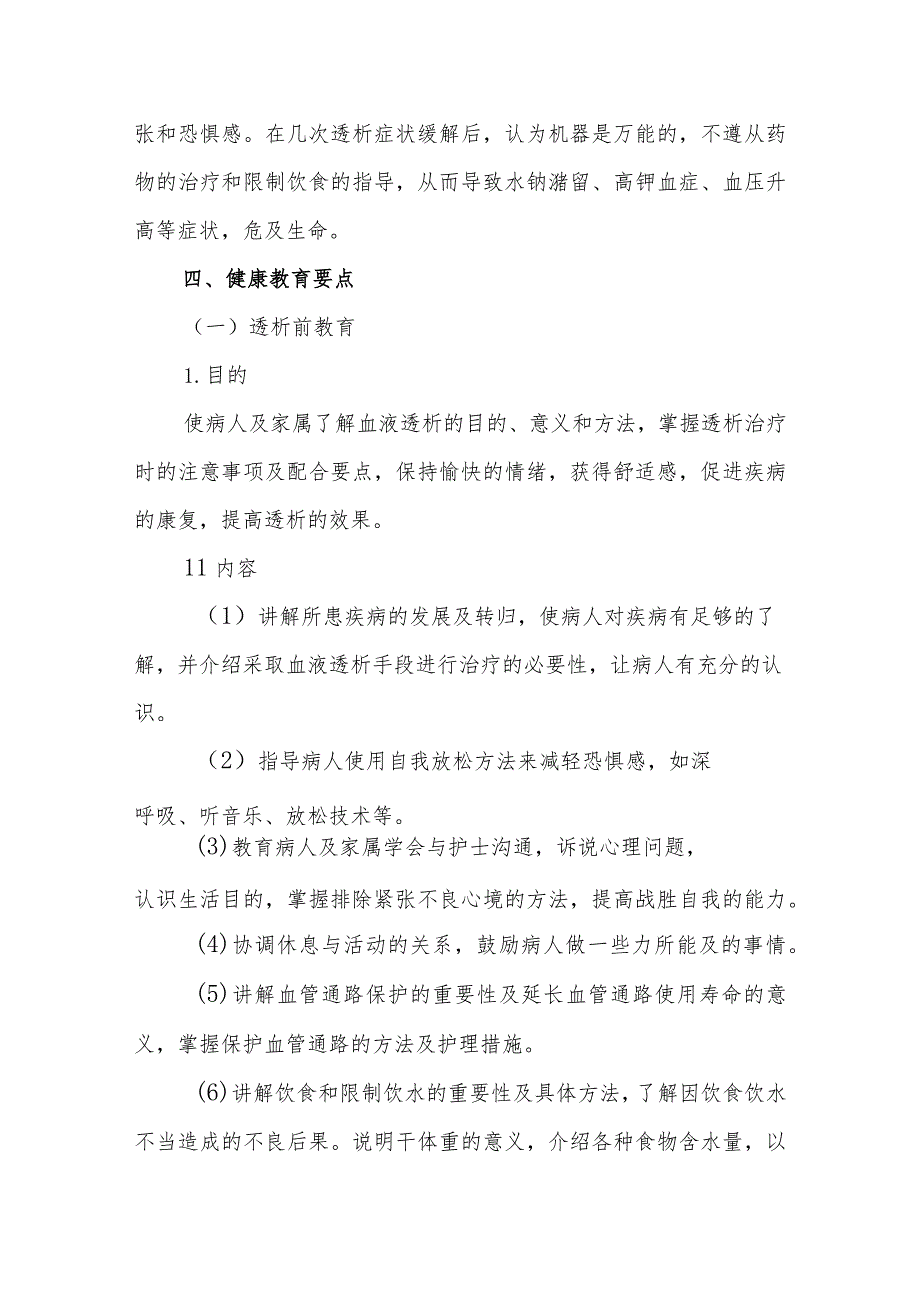 张和恐惧感。在几次透析症状缓解后，认为机器是万能的，不遵从药
物的治疗和限制饮食的指导，从而导致水钠潴留、高钾血症、血压升
高等症状，危及生命。
四、健康教育要点
（一）透析前教育
1.目的
使病人及家属了解血液透析的目的、意义和方法，掌握透析治疗
时的注意事项及配合要点，保持愉快的情绪，获得舒适感，促进疾病
的康复，提高透析的效果。
11 内容
（1）讲解所患疾病的发展及转归，使病人对疾病有足够的了
解，并介绍采取血液透析手段进行治疗的必要性，让病人有充分的认
识。
（2）指导病人使用自我放松方法来减轻恐惧感，如深
呼吸、听音乐、放松技术等。
(3)教育病人及家属学会与护士沟通，诉说心理问题，
认识生活目的，掌握排除紧张不良心境的方法，提高战胜自我的能力。
(4)协调休息与活动的关系，鼓励病人做一些力所能及的事情。
(5)讲解血管通路保护的重要性及延长血管通路使用寿命的意
义，掌握保护血管通路的方法及护理措施。
(6)讲解饮食和限制饮水的重要性及具体方法，了解因饮食饮水
不当造成的不良后果。说明干体重的意义，介绍各种食物含水量，以